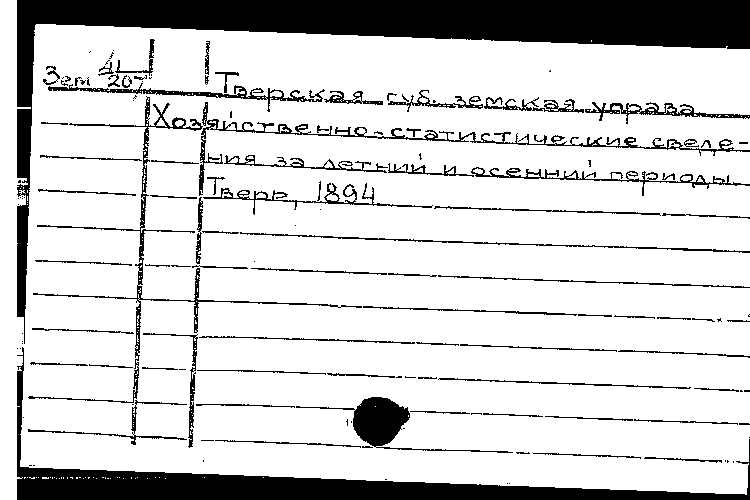 Зем 41/207
Тверская губ. земская управа
Хозяйственно-статистические сведе-
ния за летний и осенний периоды.
Тверь, 1894